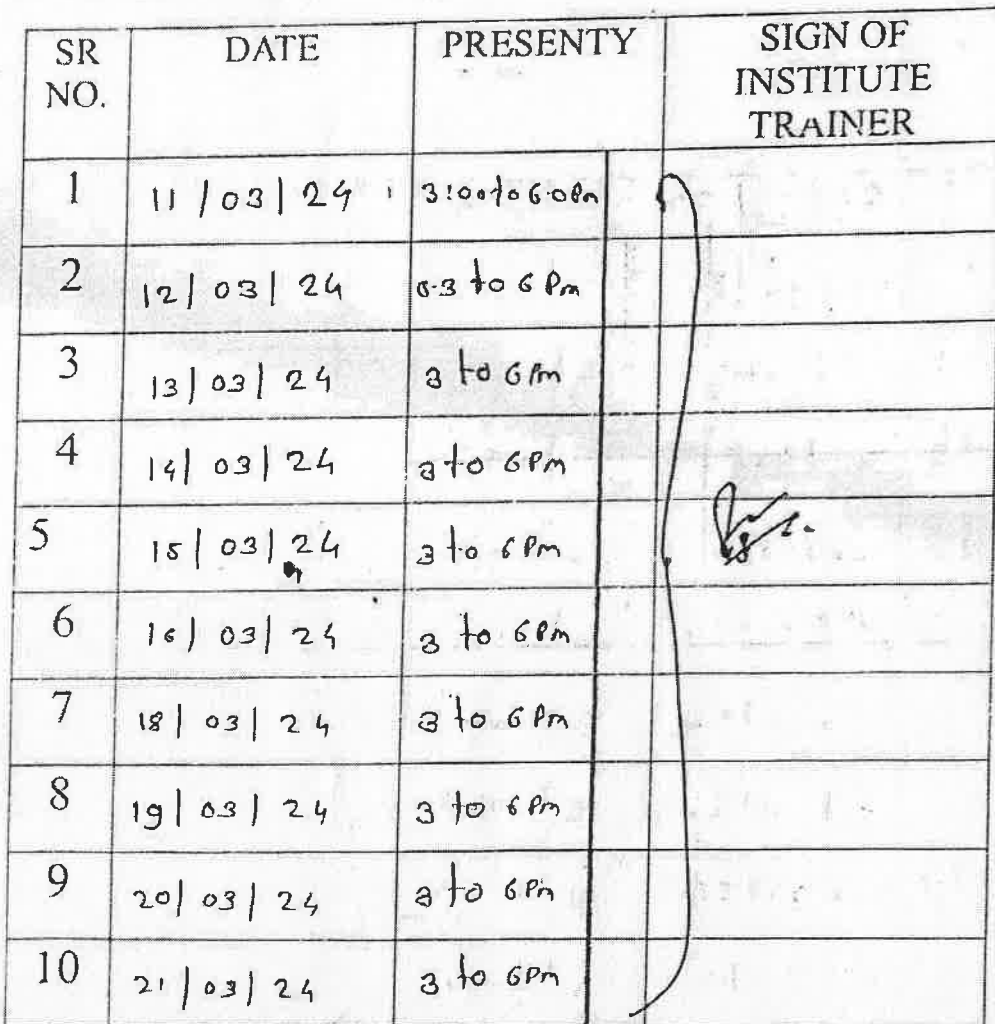 SR NO. DATE PRESENTY SIGN OF INSTITUTE TRAINER
1 11/03/24 3:00 to 6.0 Pm
2 12/03/24 0.3 to 6 Pm
3 13/03/24 3 to 6 Pm
4 14/03/24 3 to 6 Pm
5 15/03/24 3 to 6 Pm
6 16/03/24 3 to 6 Pm
7 18/03/24 3 to 6 Pm
8 19/03/24 3 to 6 Pm
9 20/03/24 3 to 6 Pm
10 21/03/24 3 to 6 Pm